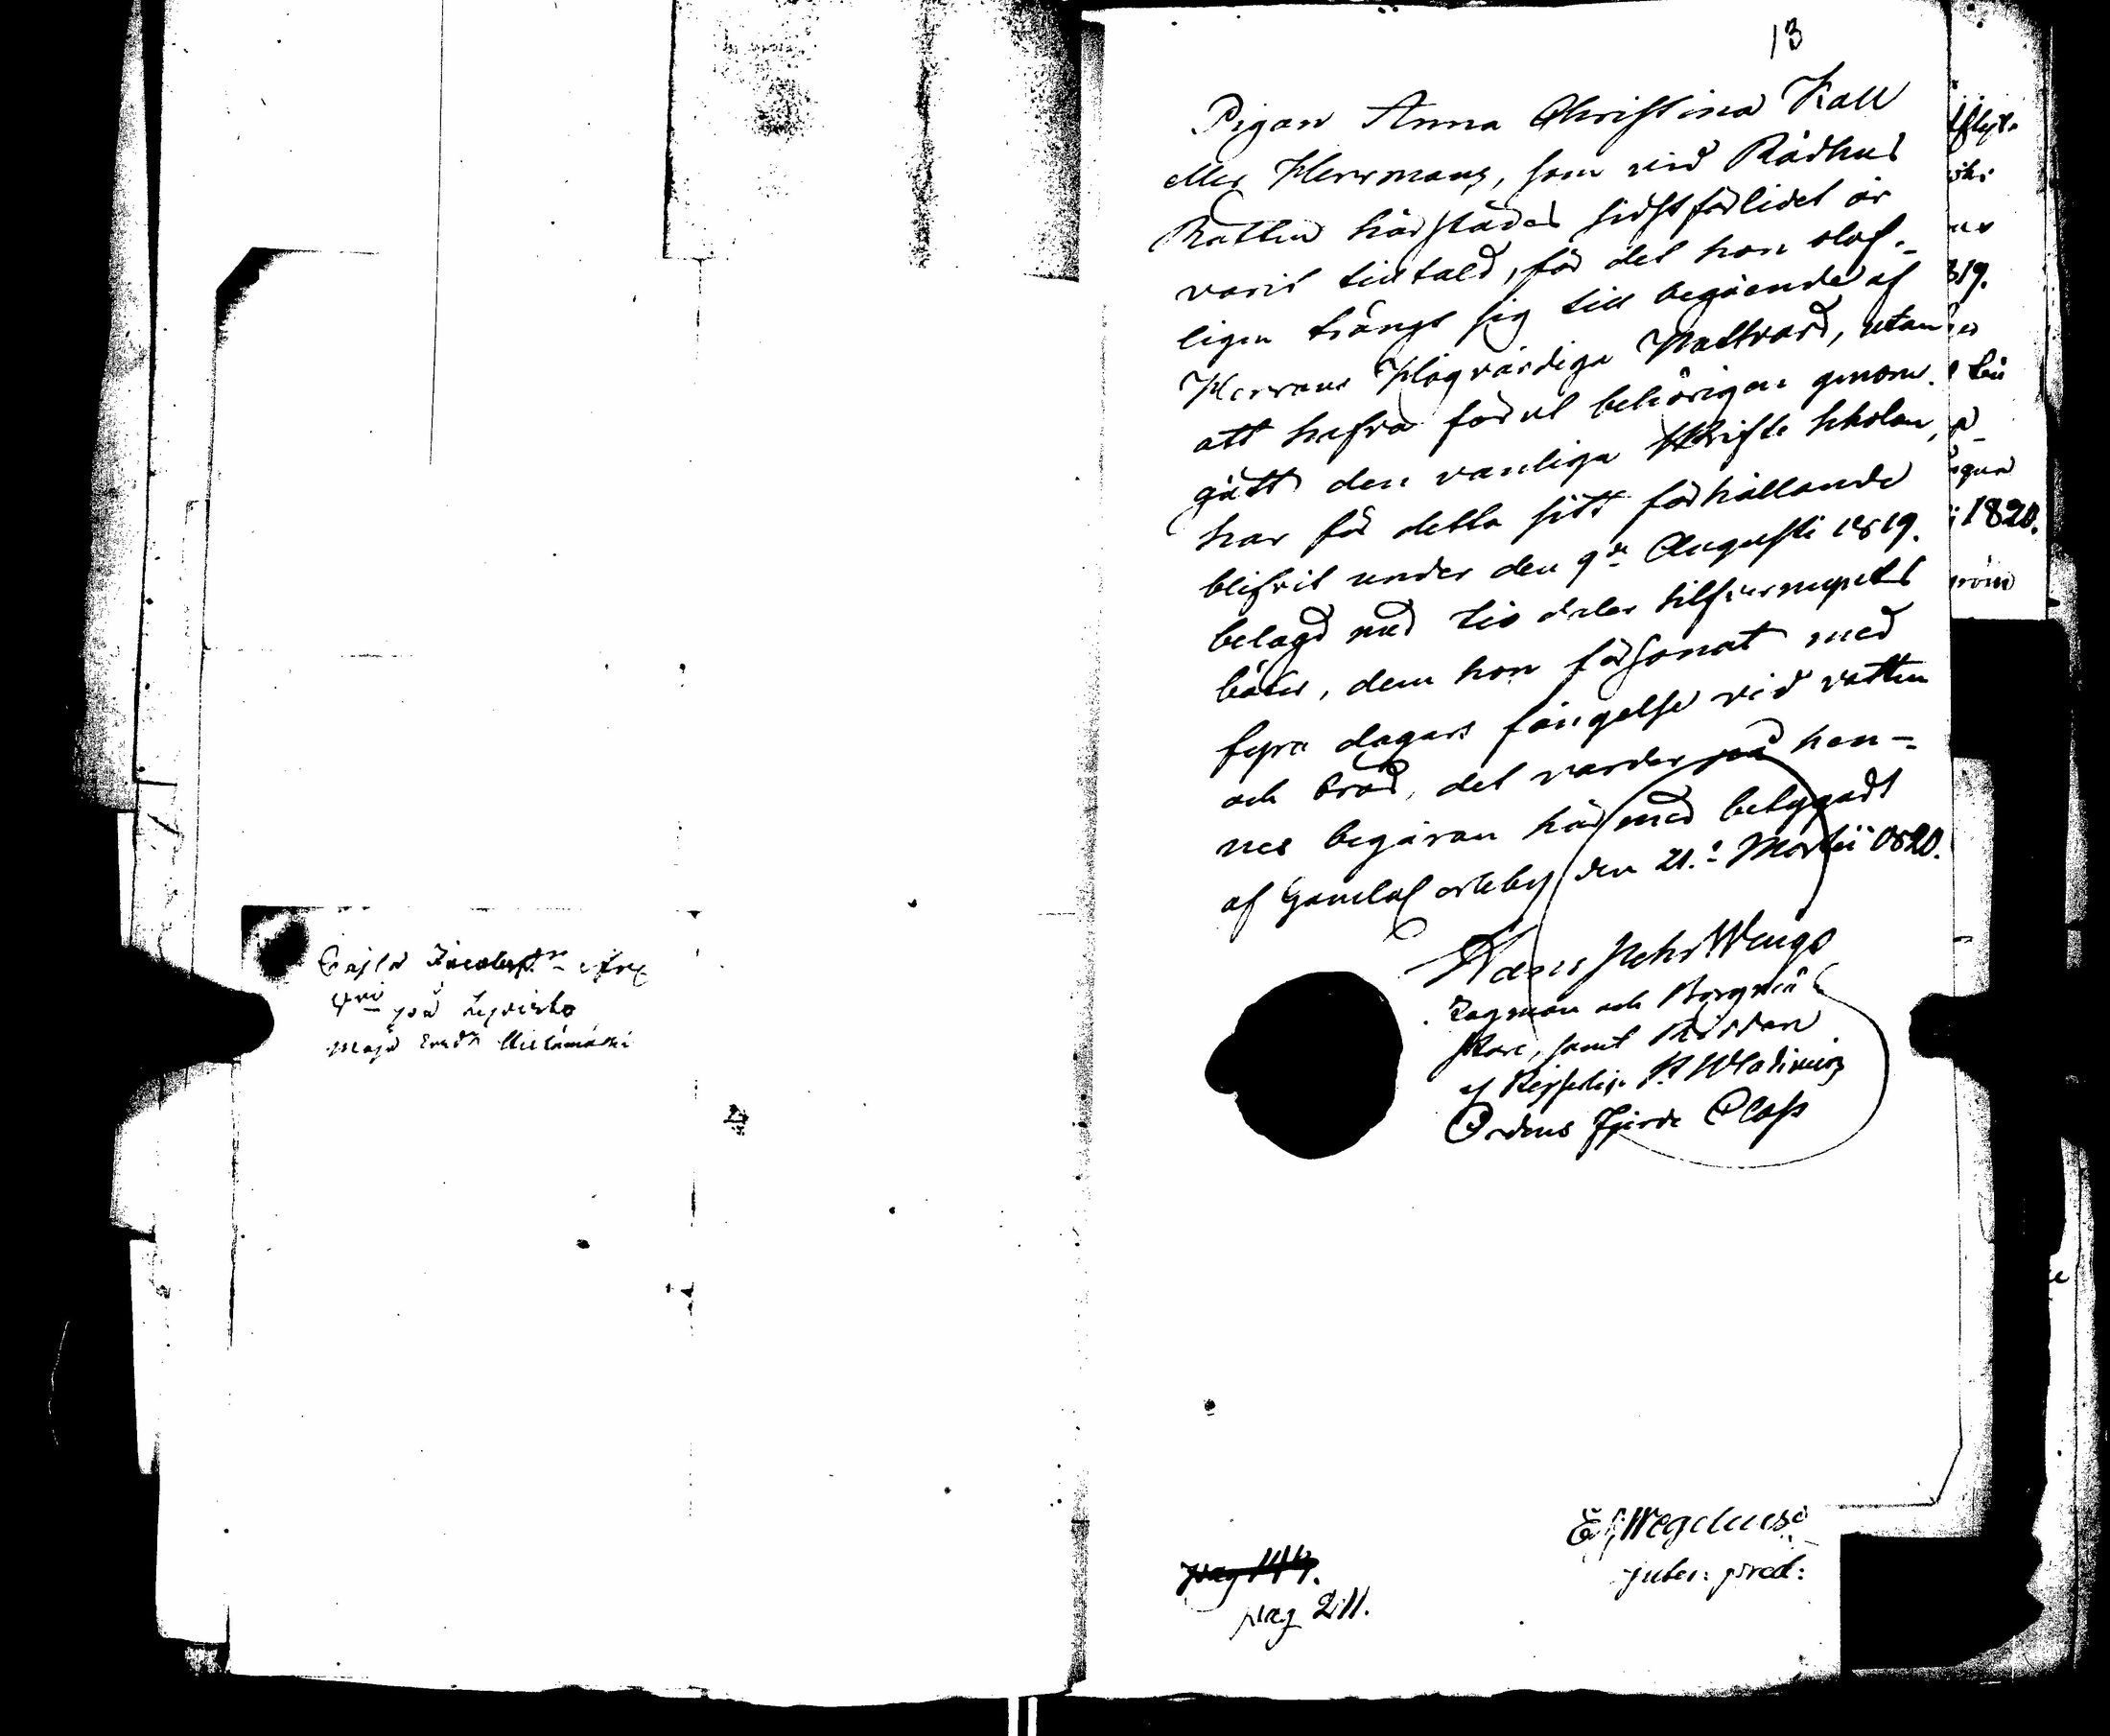 13
Pigan Anna Christina Kall
eller Herrmans, som vid Rådhus
Rätten härstädes sidstförlidet år
varit tilltald, för det hon olof-
ligen trängt sig till begående af
Herrans Högvärdiga Nattvard, utan
att hafva förut behörigen genom-
gått den vanliga Skrifte skolan,
har för detta sitt förhållande
blifvit under den 9de Augusti 1819.
belagd med tio daler silfvermynts
böter, dem hon försonat med
fyra dagars fängelse vid vatten
och bröd, det varder på hen-
nes begäran härmed betygadt
af Gamlacarleby den 21. Martii 1820.
Hans
Lagman och Borgmä-
stare, samt Riddare
af Kejserlige St Wladimirs
Ordens Fjerde Class
Cajsa
på
Maja
1820.
Wegelius
pag 144.
pag 211.